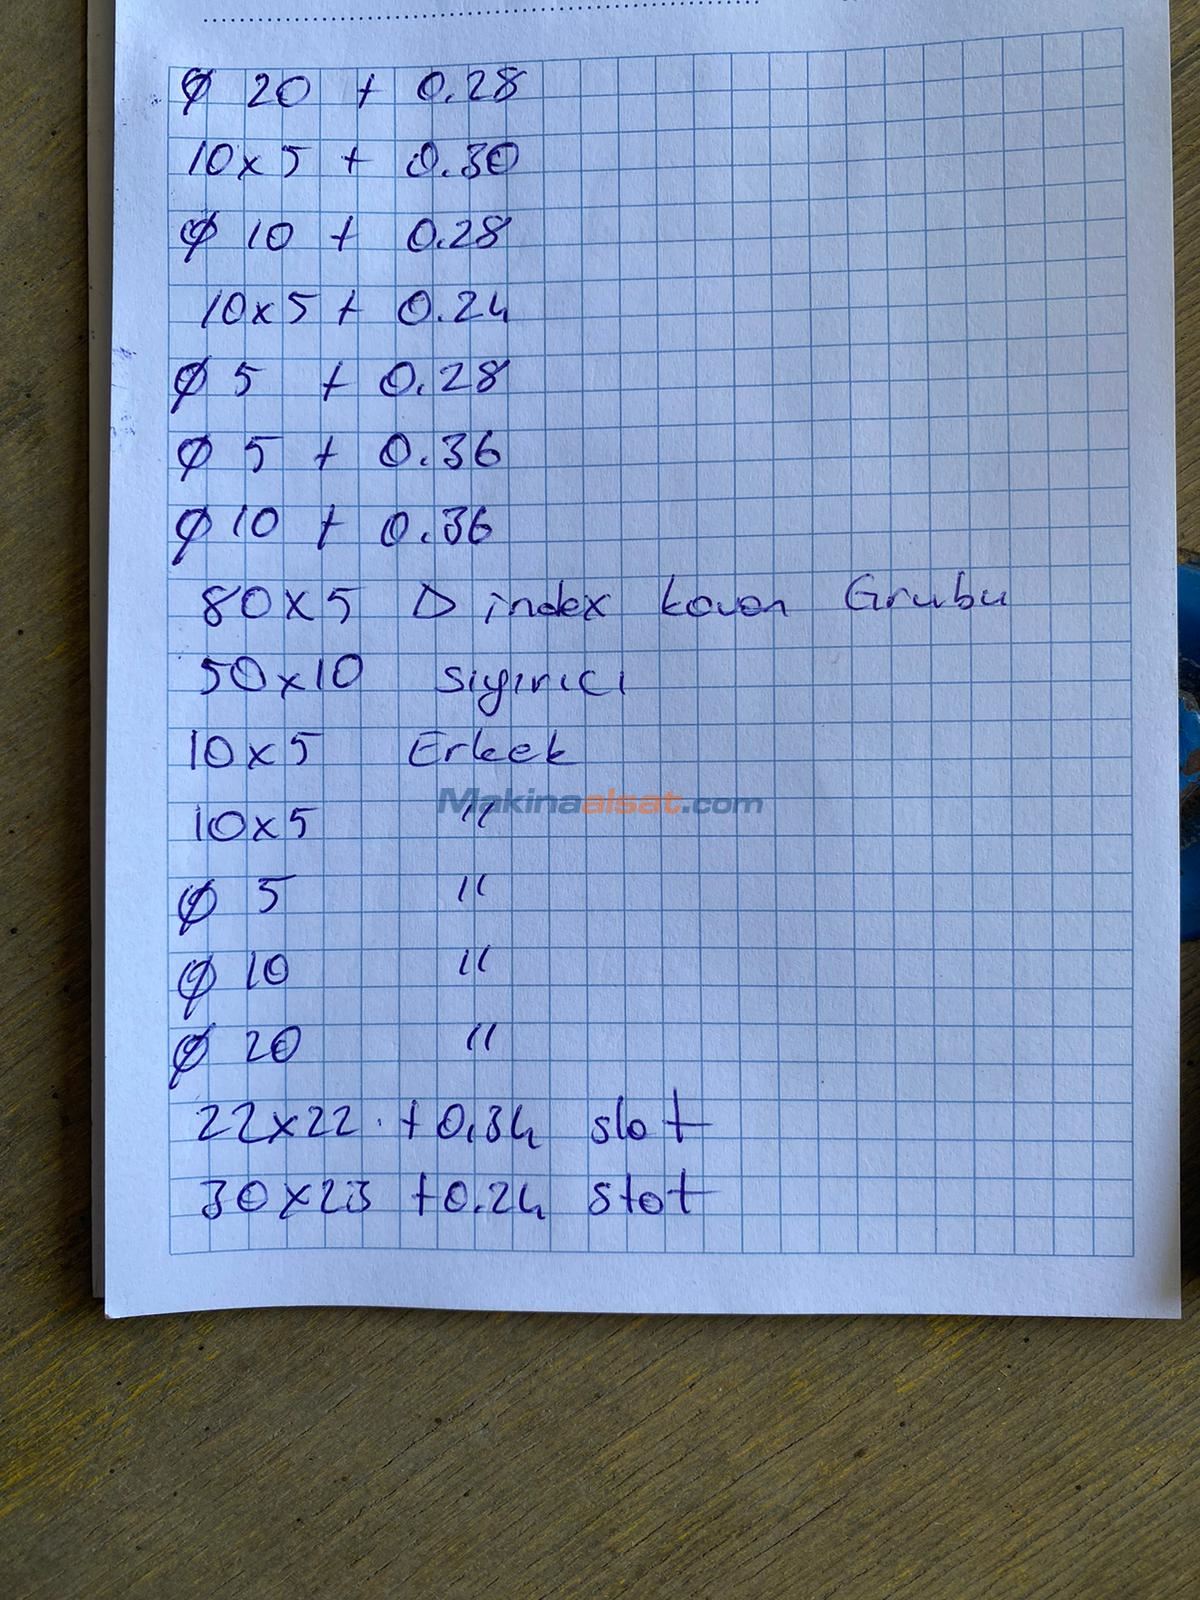 Ø 20 + 0.28
10x5 + 0.30
Ø 10 + 0.28
10x5 + 0.24
Ø 5 + 0.28
Ø 5 + 0.36
Ø 10 + 0.36
80x5 D index kovan Grubu
50x10 sıyırıcı
10x5 Erkek
Makinaalsat.com
10x5 "
Ø 5 "
Ø 10 "
Ø 20 "
22x22 + 0.34 slot
30x23 + 0.24 slot